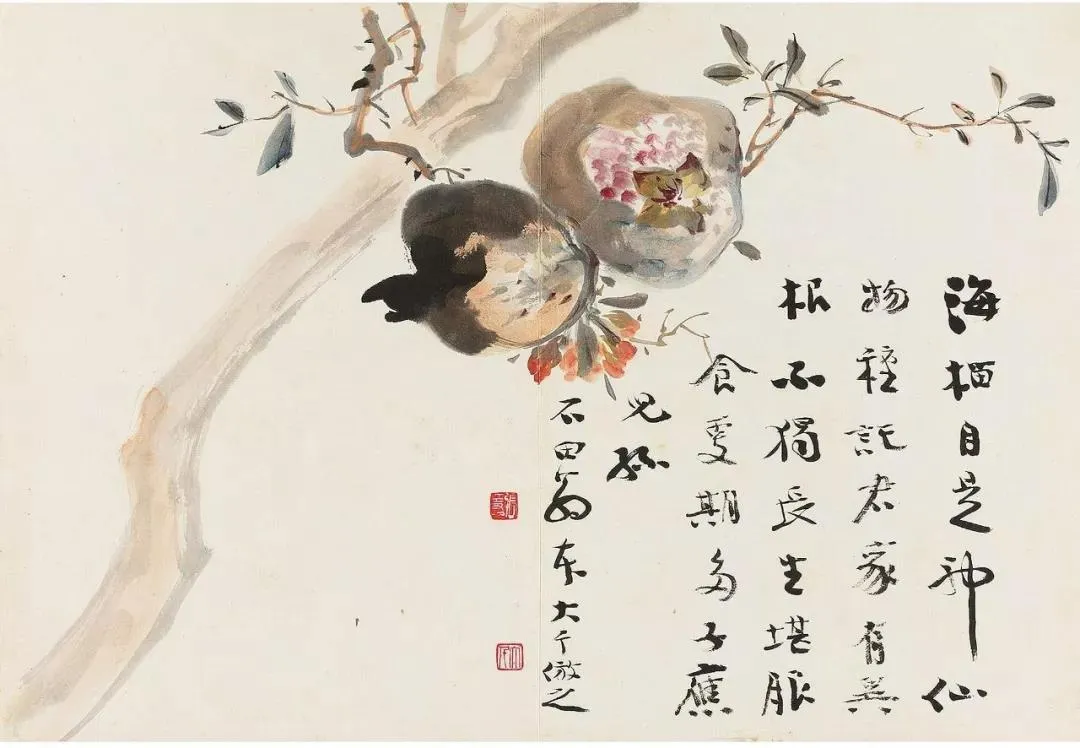 海榴自是神仙
物種託君家有異
根不獨長生堪服
食更期多子應
兒孫
石田翁本大千倣之
張爰
大千